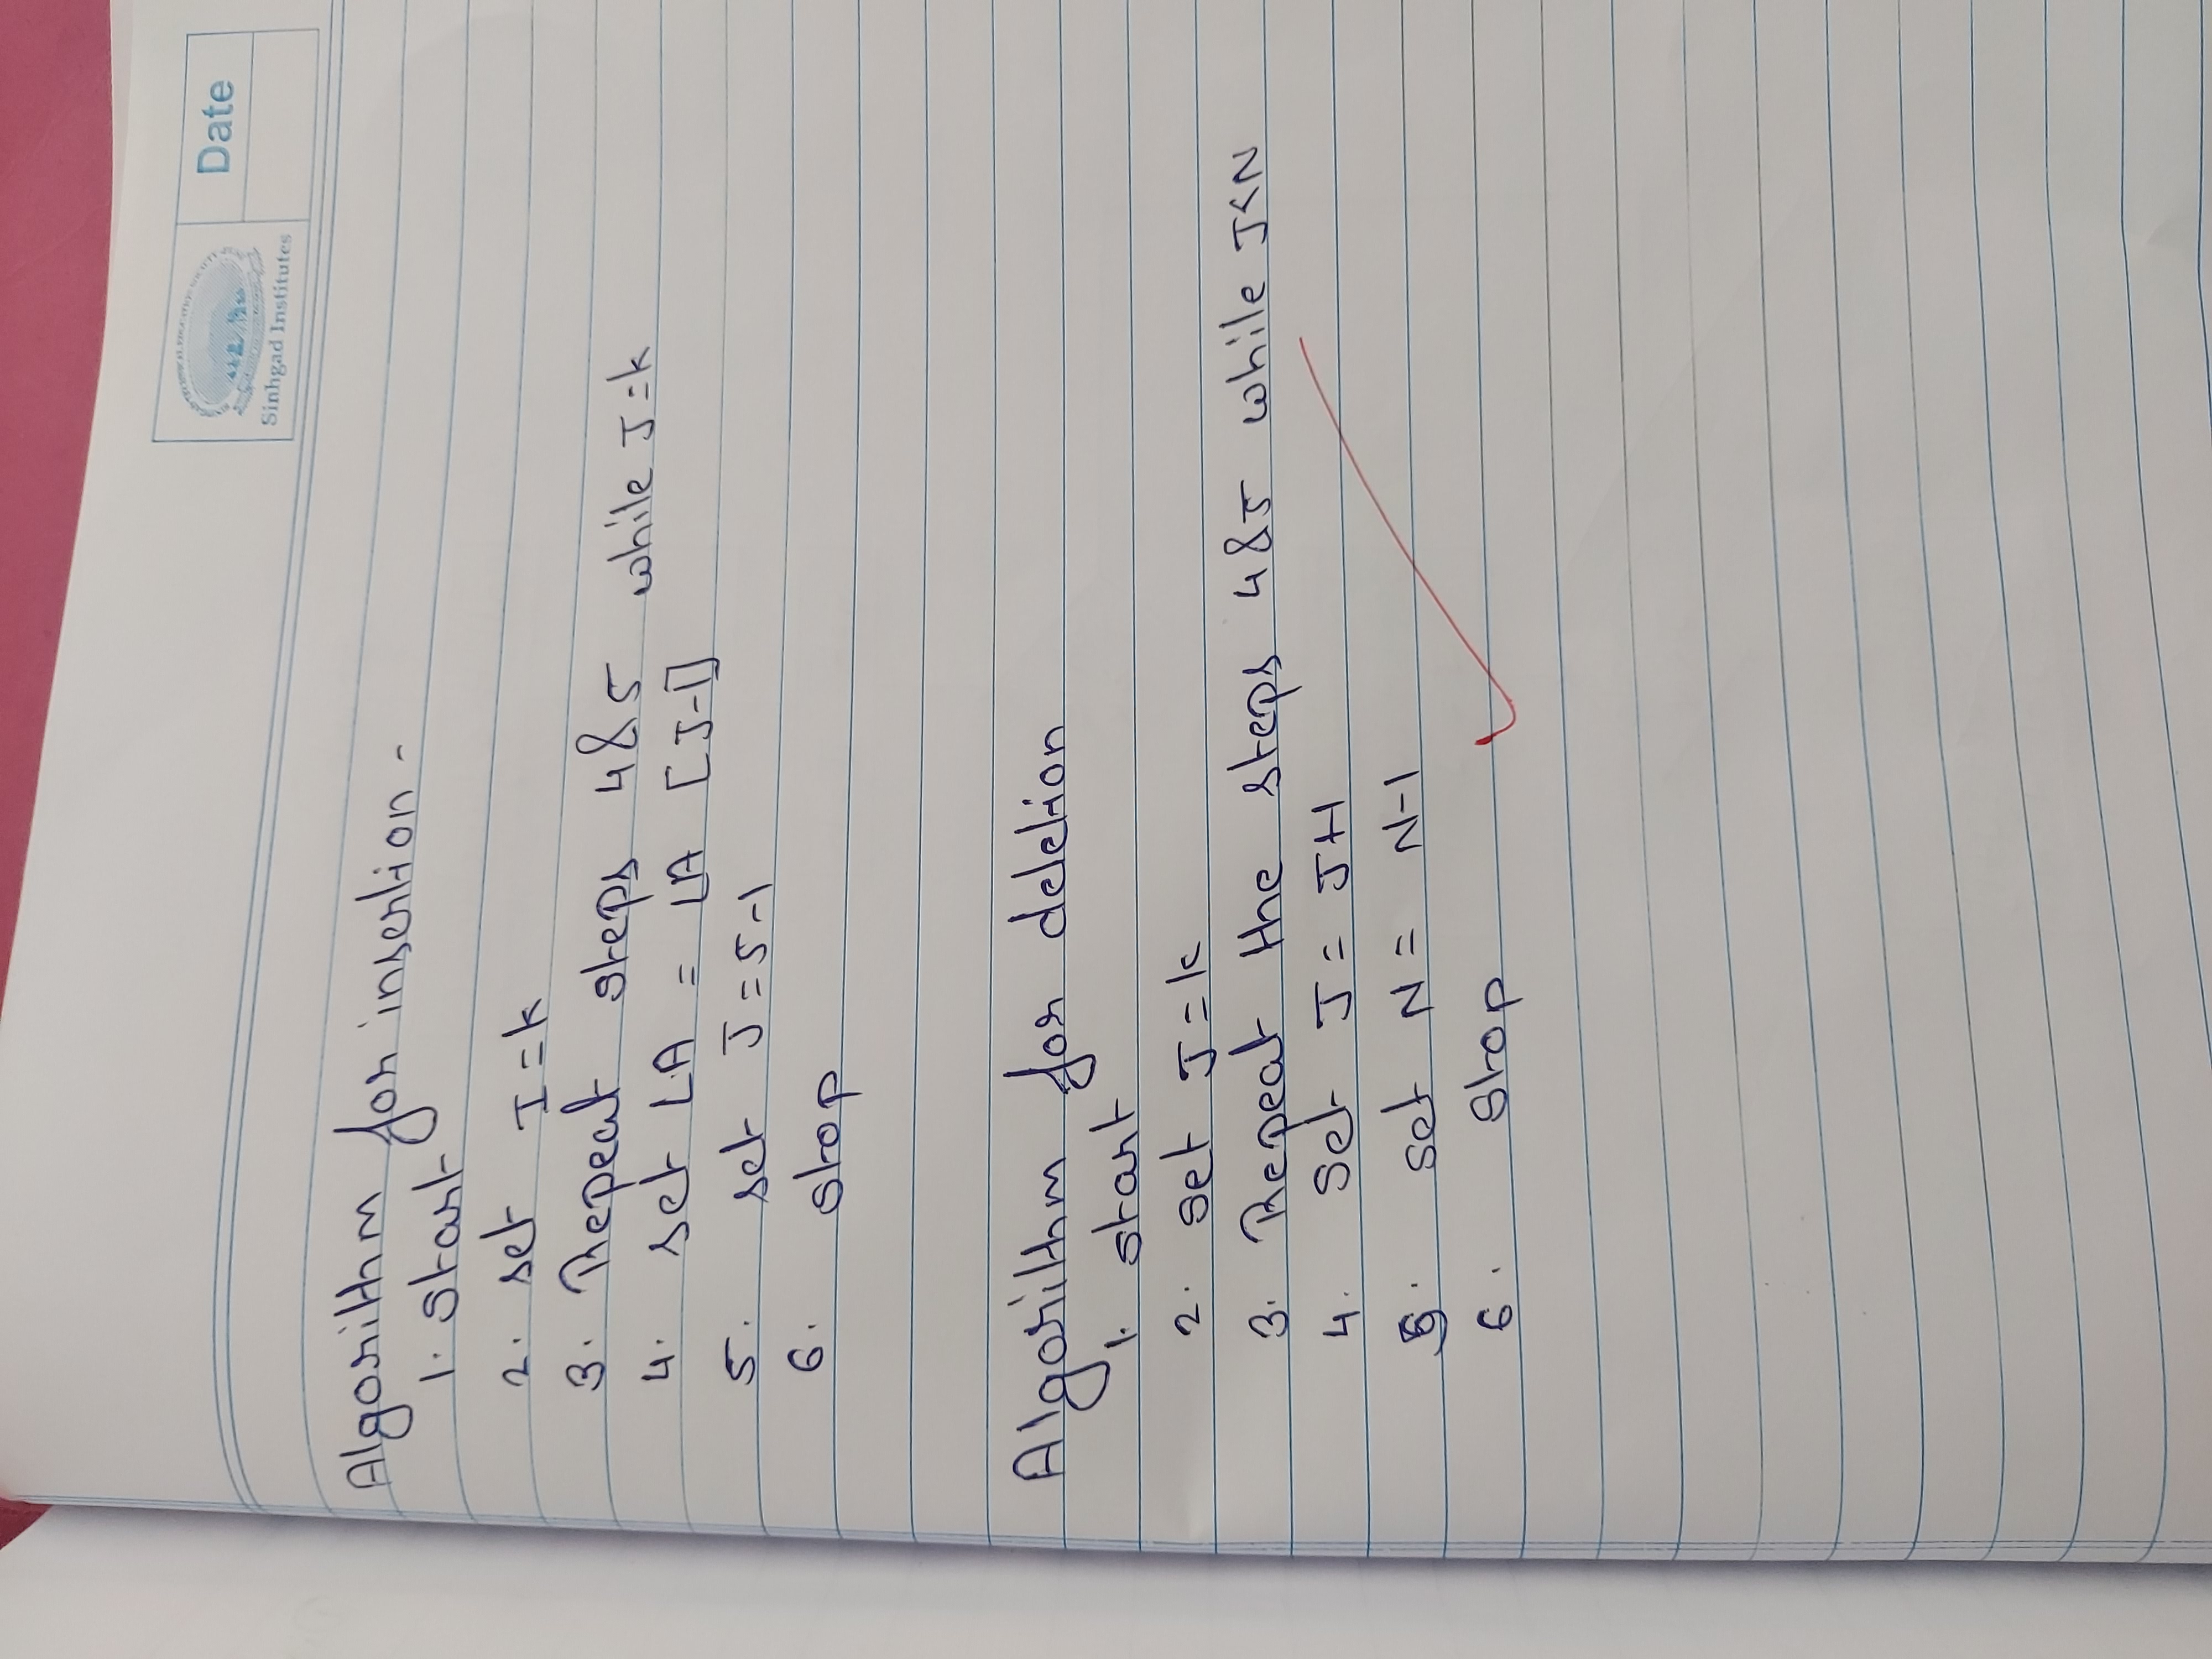 Sinhgad Institutes
Date
Algorithm for insertion -
1. Start
2. set I = k
3. Repeat steps 4 & 5 while J = k
4. set LA = LA [J-1]
5. set J = 5-1
6. stop
Algorithm for deletion
1. start
2. set J = k
3. Repeat the steps 4 & 5 while J < N
4. Set J = J+1
5. set N = N-1
6. Stop